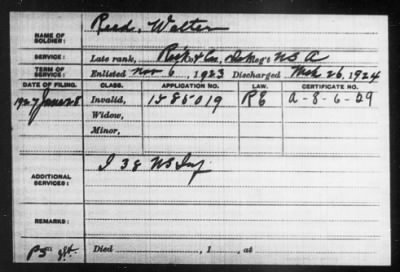 NAME OF SOLDIER: Reed, Walter
SERVICE: Late rank, Rec't Co., U S A
TERM OF SERVICE: Enlisted Nov 6, 1923 Discharged Mch 26, 1924
DATE OF FILING. CLASS. APPLICATION NO. LAW. CERTIFICATE NO.
1927 June 28 Invalid, 1585019 RE A-8-6-29
Widow,
Minor,
ADDITIONAL SERVICES: I 38 US Inf
REMARKS:
Died , 1 , at